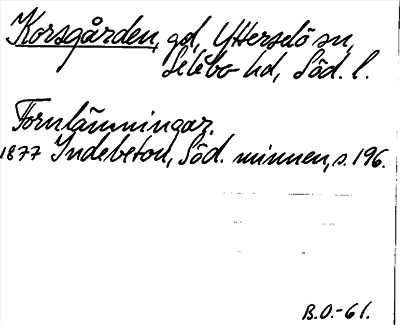 Korsgården, gd, Ytterselö sn,
Selebo hd, Söd. l.
Fornlämningar.
1877 Indebetou, Söd. minnen, s. 196.
B.O.-61.